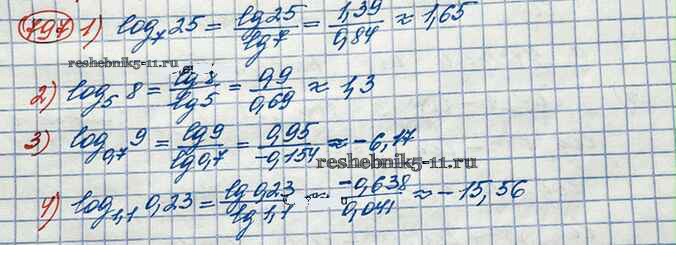 797 1) log₇ 25 = lg 25 / lg 7 = 1,39 / 0,84 ≈ 1,65
reshebnik5-11.ru
2) log₅ 8 = lg 8 / lg 5 = 0,9 / 0,69 ≈ 1,3
3) log₀,₇ 9 = lg 9 / lg 0,7 = 0,95 / -0,154 ≈ -6,17
reshebnik5-11.ru
4) log₁,₁ 0,23 = lg 0,23 / lg 1,1 = -0,638 / 0,041 ≈ -15,56